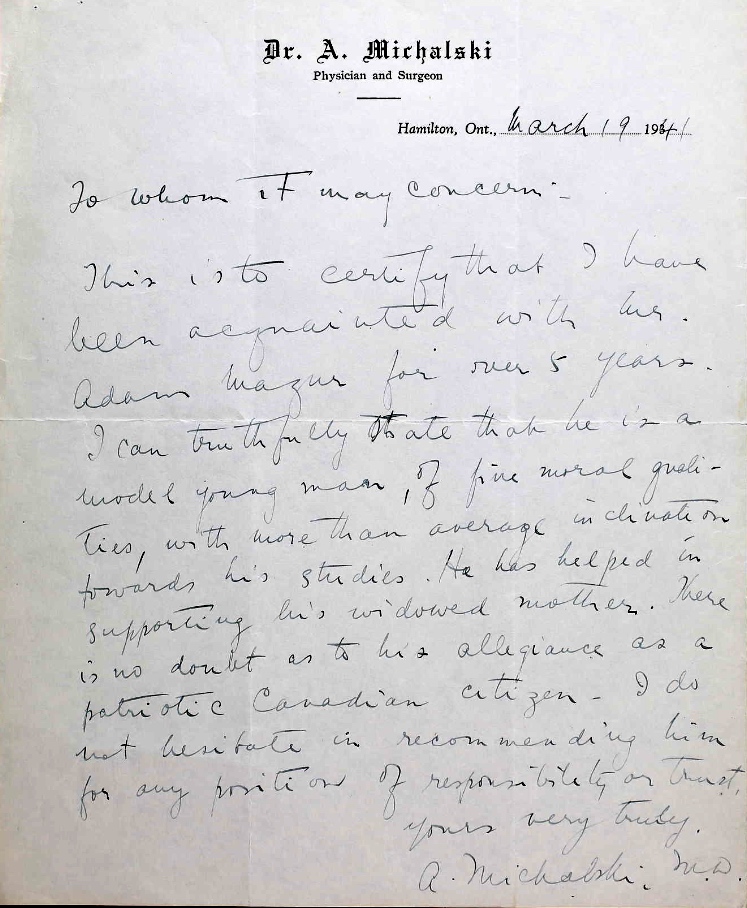 Dr. A. Michalski
Physician and Surgeon
Hamilton, Ont., March 19 1941
To whom it may concern:-
This is to certify that I have
been acquainted with Mr.
Adam Mazur for over 5 years.
I can truthfully state that he is a
model young man, of fine moral quali-
ties, with more than average inclination
towards his studies. He has helped in
supporting his widowed mother. There
is no doubt as to his allegiance as a
patriotic Canadian citizen - I do
not hesitate in recommending him
for any position of responsibility or trust.
yours very truly.
A. Michalski. M.D.